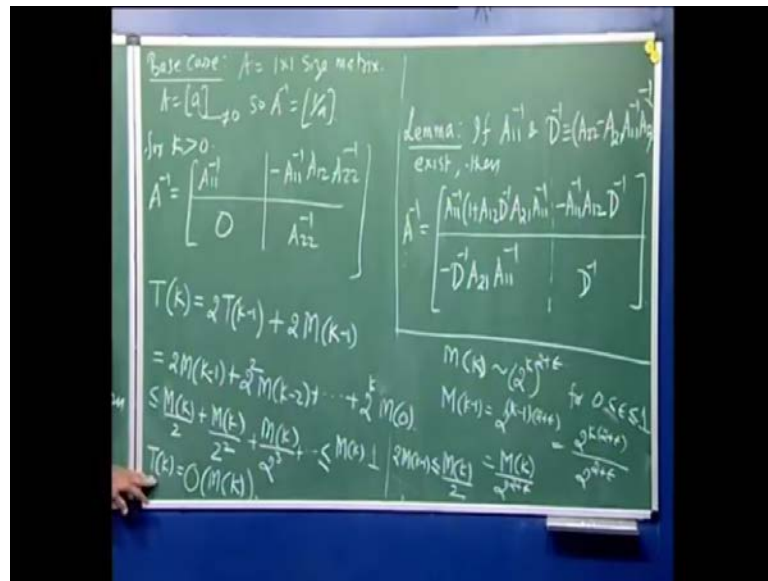 Base Case: A = 1x1 size matrix.
A = [a]≠0 so A⁻¹ = [1/a]
for k>0.
A⁻¹ = [ A₁₁⁻¹ | -A₁₁⁻¹ A₁₂ A₂₂⁻¹
0 | A₂₂⁻¹ ]
T(k) = 2T(k-1) + 2M(k-1)
= 2M(k-1) + 2²M(k-2) + ... + 2ᵏ M(0)
≤ M(k)/2 + M(k)/2² + M(k)/2³ + ... ≤ M(k)⊥
T(k) = O(M(k)).
Lemma: If A₁₁⁻¹ & D⁻¹ ≡ (A₂₂ - A₂₁A₁₁⁻¹A₁₂)⁻¹
exist, then
A⁻¹ = [ A₁₁⁻¹(1+A₁₂D⁻¹A₂₁A₁₁⁻¹ | -A₁₁⁻¹A₁₂D⁻¹
-D⁻¹A₂₁A₁₁⁻¹ | D⁻¹ ]
M(k) ~ (2ᵏ)²⁺ᵋ
for 0≤ε≤1
M(k-1) = 2^{(k-1)(2+ε)} = 2^{k(2+ε)}/2^{2+ε}
2M(k-1) ≤ M(k)/2 = M(k)/2^{2+ε}